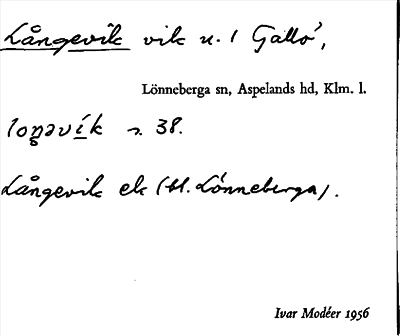 Långevik vik n. 1 Gällö,
Lönneberga sn, Aspelands hd, Klm. l.
loŋəvik 38.
Långevik ek (Lönneberga).
Ivar Modéer 1956